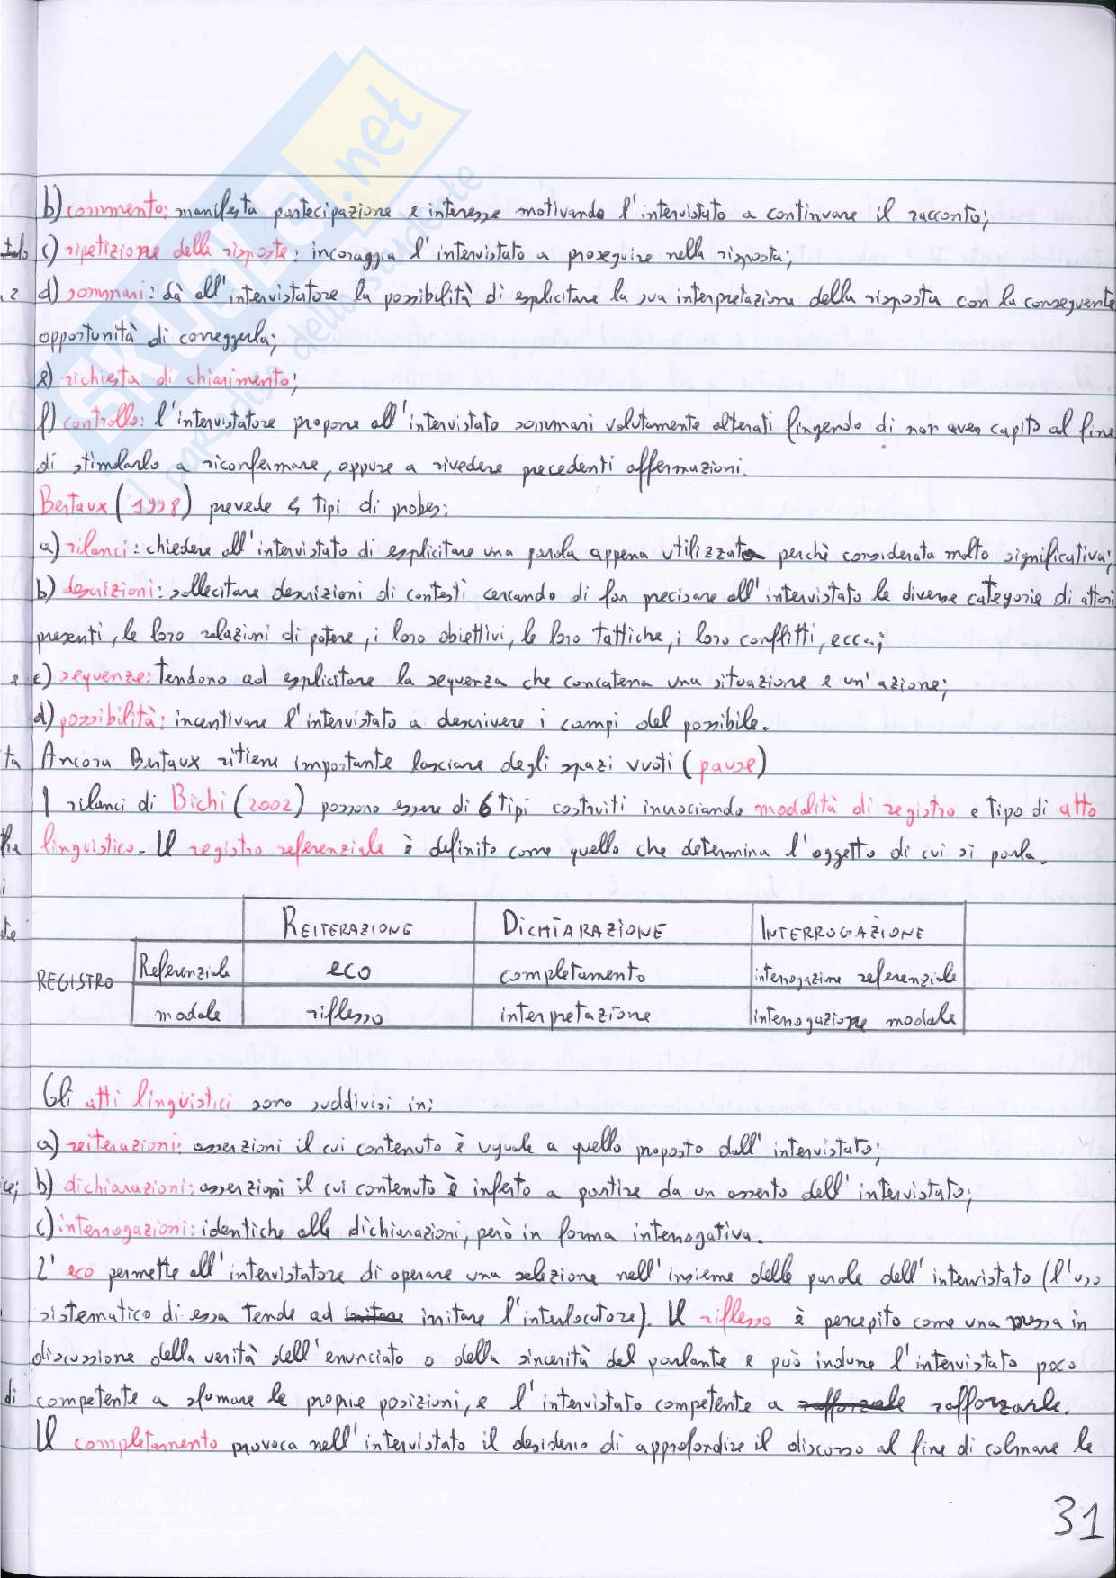 SKUOLA.net
il paradiso dello studente
b) commento: manifesta partecipazione e interesse motivando l'intervistato a continuare il racconto;
c) ripetizione della risposte: incoraggia l'intervistato a proseguire nella risposta;
d) sommari: dà all'intervistatore la possibilità di esplicitare la sua interpretazione della risposta con la conseguente
opportunità di correggerla;
e) richiesta di chiarimento;
f) controllo: l'intervistatore propone all'intervistato sommari volutamente alterati fingendo di non aver capito al fine
di stimolarlo a riconfermare, oppure a rivedere precedenti affermazioni.
Bertaux (1998) prevede 4 tipi di probes:
a) rilanci: chiedere all'intervistato di esplicitare una parola appena utilizzata perchè considerata molto significativa;
b) descrizioni: sollecitare descrizioni di contesti cercando di far precisare all'intervistato le diverse categorie di attori
presenti, le loro relazioni di potere, i loro obiettivi, le loro tattiche, i loro conflitti, ecc..;
c) sequenze: tendono ad esplicitare la sequenza che concatena una situazione e un'azione;
d) possibilità: incentivare l'intervistato a descrivere i campi del possibile.
Ancora Bertaux ritiene importante lasciare degli spazi vuoti (pause)
I rilanci di Bichi (2002) possono essere di 6 tipi costruiti incrociando modalità di registro e tipo di atto
linguistico. Il registro referenziale è definito come quello che determina l'oggetto di cui si parla.
REITERAZIONE DICHIARAZIONE INTERROGAZIONE
REGISTRO Referenziale eco completamento interrogazione referenziale
modale riflesso interpretazione interrogazione modale
Gli atti linguistici sono suddivisi in:
a) reiterazioni: asserzioni il cui contenuto è uguale a quello proposto dall'intervistato;
b) dichiarazioni: asserzioni il cui contenuto è inferto a partire da un asserto dell'intervistato;
c) interrogazioni: identiche alle dichiarazioni, però in forma interrogativa.
L'eco permette all'intervistatore di operare una selezione nell'insieme delle parole dell'intervistato (l'uso
sistematico di essa tende ad imitare l'interlocutore). Il riflesso è percepito come una messa in
discussione della verità dell'enunciato o della sincerità del parlante e può indurre l'intervistato poco
competente a sfumare le proprie posizioni, e l'intervistato competente a rafforzarle.
Il completamento provoca nell'intervistato il desiderio di approfondire il discorso al fine di colmare le
31